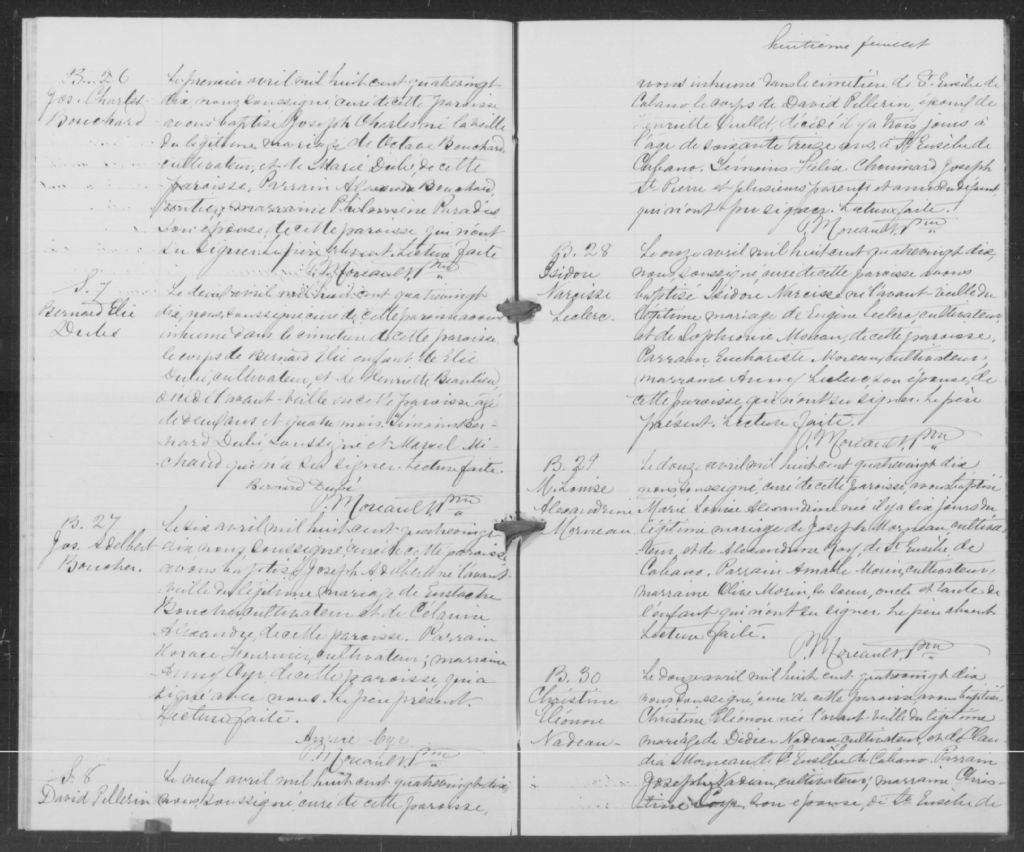 B. 26
Jos. Charles
Bouchard
Le premier avril mil huit cent quatrevingt
dix, nous soussigné, curé de cette paroisse
avons baptisé Joseph Charles né la veille
du légitime mariage de Octave Bouchard
cultivateur, et de Marie Dubé, de cette
paroisse. Parrain Alexandre Bouchard,
rentier, marraine Philomène Paradis
son épouse, de cette paroisse qui n'ont
su signer. Le père absent. Lecture faite
P. Moreault, Ptre
S. 7
Bernard Elie
Dubé
Le deux avril mil huit cent quatrevingt
dix, nous soussigné, curé de cette paroisse avons
inhumé dans le cimetière de cette paroisse,
le corps de Bernard Elie enfant de Elie
Dubé, cultivateur, et de Henriette Beaulieu,
décédé l'avant-veille en cette paroisse âgé
de deux ans et quatre mois. Témoins Ber-
nard Dubé soussigné et Marcel Mi-
chaud qui n'a su signer. Lecture faite.
Bernard Dubé
P. Moreault, Ptre
B. 27
Jos. Adelbert
Boucher.
Le six avril mil huit cent quatrevingt
dix, nous soussigné, curé de cette paroisse
avons baptisé Joseph Adelbert né l'avant-
veille du légitime mariage de Eustache
Boucher, cultivateur et de Célanire
Alexandre, de cette paroisse. Parrain
Horace Fournier, cultivateur; marraine
Anny Cyr de cette paroisse qui a
signé avec nous. Le père présent.
Lecture faite.
Cyr
P. Moreault Ptre
S. 8
David Pellerin
Le neuf avril mil huit cent quatrevingt dix,
nous, soussigné curé de cette paroisse,
huitième feuillet
avons inhumé dans le cimetière de St Eusèbe de
Cabano le corps de David Pellerin, époux de
Henriette Ouellet, décédé il y a trois jours à
l'âge de soixante treize ans, à St Eusèbe de
Cabano. Témoins Felix Chouinard Joseph
St Pierre et plusieurs parents et amis du défunt,
qui n'ont pu signer. Lecture faite.
P. Moreault, Ptre
B. 28
Isidore
Narcisse
Leclerc.
Le onze avril mil huit cent quatrevingt dix,
nous, soussigné curé de cette paroisse avons
baptisé Isidore Narcisse né l'avant-veille du
légitime mariage de Eugène Leclerc, cultivateur,
et de Sophronie Moreau, de cette paroisse.
Parrain Euchariste Moreau, cultivateur;
marraine Anny Leclerc, son épouse, de
cette paroisse, qui n'ont su signer. Le père
présent. Lecture faite.
P. Moreault, Ptre
B. 29
M. Louise
Alexandrine
Morneau
Le douze avril mil huit cent quatrevingt dix
nous soussigné, curé de cette paroisse, avons baptisé
Marie Louise Alexandrine née il y a dix jours du
légitime mariage de Joseph Morneau, cultiva-
teur, et de Alexandrine Roy, de St Eusèbe de
Cabano. Parrain Amable Morin, cultivateur;
marraine Olive Morin, sa soeur, oncle et tante de
l'enfant qui n'ont su signer. Le père absent
Lecture faite.
P. Moreault, Ptre
B. 30
Christine
Eléonore
Nadeau
Le douze avril mil huit cent quatrevingt dix
nous soussigné, curé de cette paroisse avons baptisé
Christine Eléonore née l'avant-veille du légitime
mariage de Didier Nadeau, cultivateur, et de Clau-
dia Morneau de St Eusèbe de Cabano. Parrain
Joseph Nadeau, cultivateur; marraine Chris-
tine son épouse, de St Eusèbe de